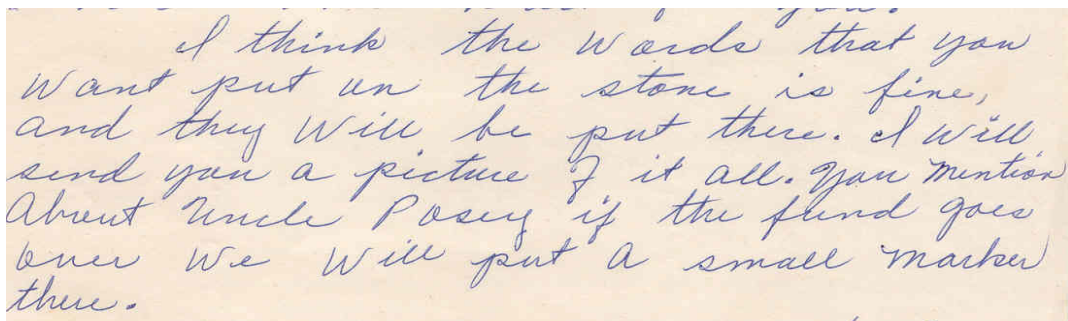 you.
I think the words that you
want put on the stone is fine,
and they will be put there. I will
send you a picture of it all. You mention
About Uncle Posey if the fund goes
over we will put a small marker
there.